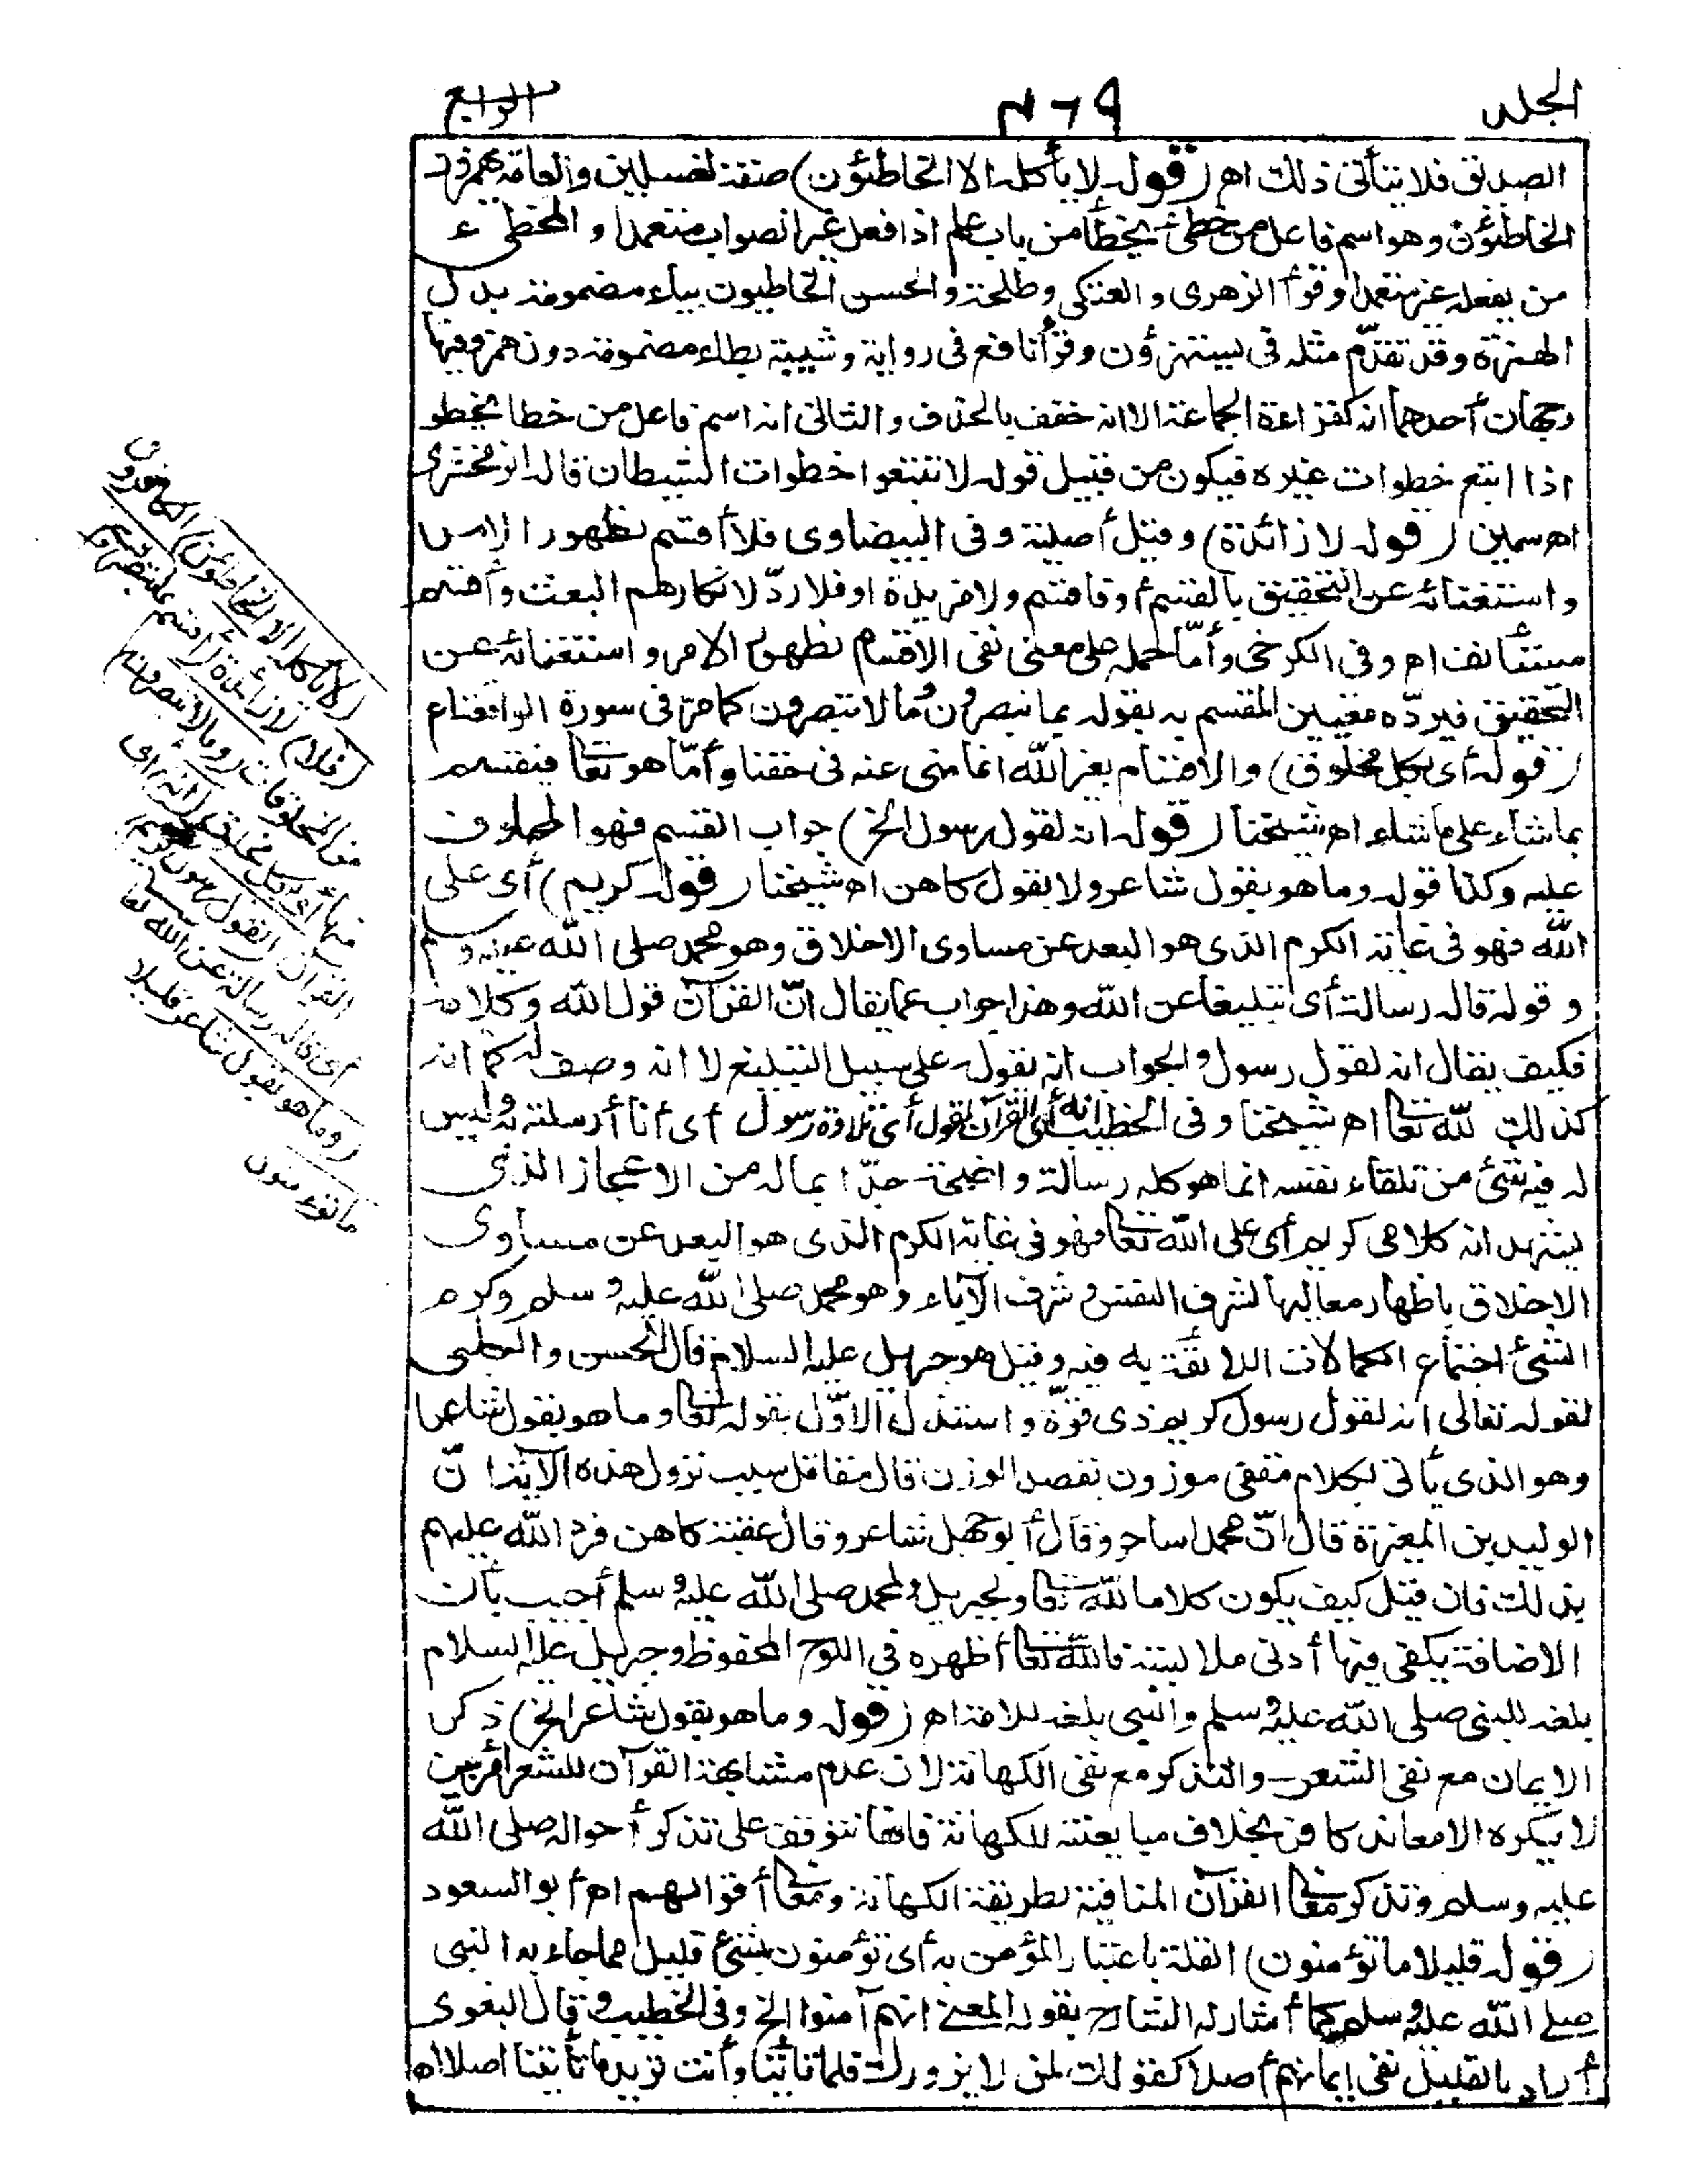 الجلد
٤٦٩
الرابع
الصديق فلا يتأتى ذلك اه (قوله لا يأكله الا الخاطئون) صفة لغسلين والعامة يهمزون
الخاطئون وهو اسم فاعل من خطئ يخطأ من باب علم اذا فعل غير الصواب متعمدا والمخطئ
من يفعله غير متعمد وقرأ الزهرى والعتكى وطلحة والحسن الخاطيون بياء مضمومة بدل
الهمزة وقد تقدّم مثله فى يستهزؤن وقرأ نافع فى رواية وشيبة بطاء مضمومة دون همز وفيها
وجهان أحدهما انه كقراءة الجماعة الا انه خفف بالحذف والثانى انه اسم فاعل من خطا يخطو
اذا اتبع خطوات غيره فيكون من قبيل قوله لا تتبعوا خطوات الشيطان قاله الزمخشرى
اه سمين (قوله لا زائدة) وقيل أصلية وفى البيضاوى فلا أقسم لظهور الامر
واستغنائه عن التحقيق بالقسم أو فاقسم ولا مزيدة او فلا ردّ لانكارهم البعث وأقسم
مستأنف اه وفى الكرخى وأمّا حمله على معنى نفى الاقسام لظهور الامر واستغنائه عن
التحقيق فيردّه تعيين المقسم به بقوله بما تبصرون وما لا تبصرون كما مرّ فى سورة الواقعة اه
(قوله أى بكل مخلوق) والاقسام بغير الله انما نهى عنه فى حقنا وأمّا هو تعالى فيقسم
بما شاء على ما شاء اه شيخنا (قوله انه لقول رسول الخ) جواب القسم فهو المحلوف
عليه وكذا قوله وما هو بقول شاعر ولا بقول كاهن اه شيخنا (قوله كريم) أى على
الله فهو فى غاية الكرم الذى هو البعد عن مساوى الاخلاق وهو محمد صلى الله عليه وسلم
وقوله قاله رسالة أى تبليغا عن الله وهذا جواب عما يقال انّ القرآن قول الله وكلامه
فكيف يقال انه لقول رسول والجواب انه يقوله على سبيل التبليغ لا انه وصف له كما انه
كذلك لله تعالى اه شيخنا وفى الخطيب انه أى القرآن لقول أى تلاوة رسول أى أنا أرسلته به وليس
له فيه شئ من تلقاء نفسه انما هو كله رسالة واضحة جدّا بماله من الاعجاز الذى
يشهد انه كلامى كريم أى على الله تعالى فهو فى غاية الكرم الذى هو البعد عن مساوى
الاخلاق باظهار معاليها لشرف النفس وشرف الآباء وهو محمد صلى الله عليه وسلم وكرم
الشئ اجتماع الكمالات اللائقة به فيه وقيل هو جبريل عليه السلام قال الحسن والكلبى
لقوله تعالى انه لقول رسول كريم ذى قوّة واستدل الاوّل بقوله تعالى وما هو بقول شاعر
وهو الذى يأتى بكلام مقفى موزون بقصد الوزن قال مقاتل سبب نزول هذه الآية انّ
الوليد بن المغيرة قال انّ محمدا ساحر وقال أبو جهل شاعر وقال عقبة كاهن فرد الله عليهم
بذلك فان قيل كيف يكون كلاما لله تعالى ولجبريل ولمحمد صلى الله عليه وسلم أجيب بأن
الاضافة يكفى فيها أدنى ملابسة فالله تعالى أظهره فى اللوح المحفوظ وجبريل عليه السلام
بلغه للنبى صلى الله عليه وسلم والنبى بلغه للامة اه (قوله وما هو بقول شاعر الخ) ذكر
الايمان مع نفى الشعر والتذكر مع نفى الكهانة لان عدم مشابهة القرآن للشعر أمر بين
لا ينكره الا معاند كافر بخلاف مباينته للكهانة فانها تتوقف على تذكر أحواله صلى الله
عليه وسلم وتذكر معانى القرآن المنافية لطريقة الكهانة ومعانى أقوالهم اه أبو السعود
(قوله قليلا ما تؤمنون) القلة باعتبار المؤمن به أى تؤمنون بشئ قليل مما جاء به النبى
صلى الله عليه وسلم كما أشار له الشارح بقوله المعنى انهم آمنوا الخ وفى الخطيب وقال البغوى
أراد بالقليل نفى ايمانهم أصلا كقولك لمن لا يزورك قلما تأتينا وأنت تريد ما تأتينا اصلا اه
(لا يأكله الا الخاطئون) الكافرون
(فلا) لا زائدة (أقسم بما تبصرون)
من المخلوقات (وما لا تبصرون)
منها أى بكل مخلوق (انه) أى
القرآن (لقول رسول كريم)
أى قاله رسالة عن الله تعالى
(وما هو بقول شاعر قليلا
ما تؤمنون